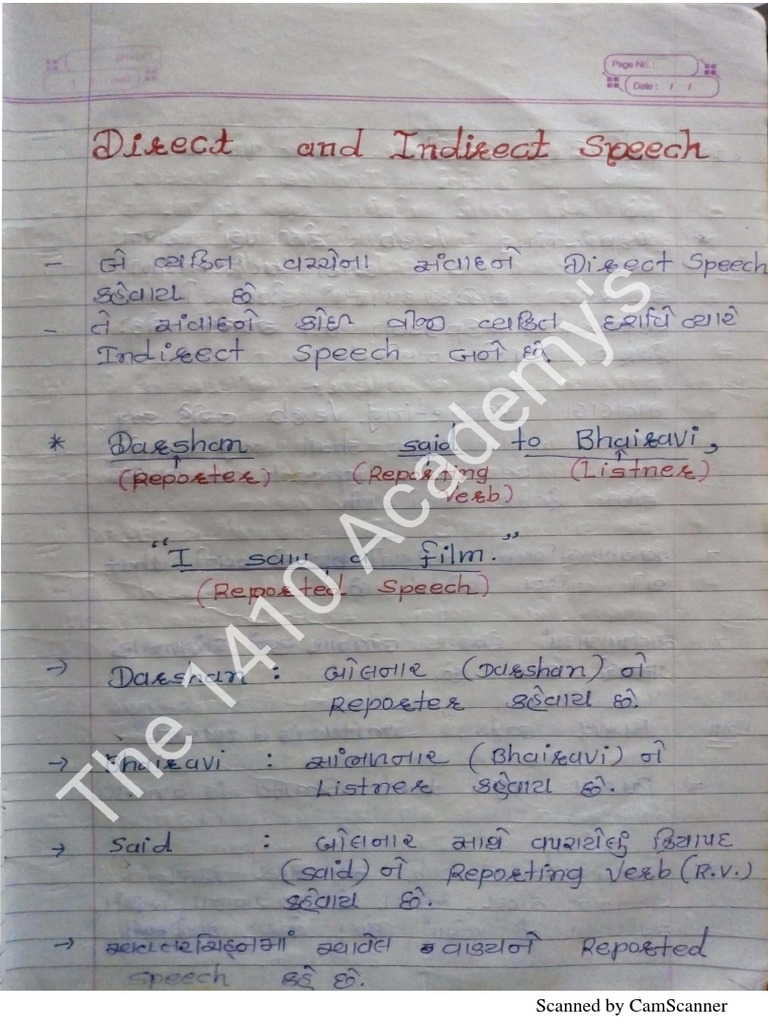 Page No. :
Date : / /
Direct and Indirect Speech
- બે વ્યકિત વચ્ચેના સંવાદને Direct Speech
કહેવાય છે
- તે સંવાદને કોઈ ત્રીજી વ્યકિત દર્શાવે ત્યારે
Indirect Speech બને છે.
* Darshan said to Bhairavi,
(Reporter) (Reporting Verb) (Listner)
"I saw a film."
(Reported Speech)
→ Darshan : બોલનાર (Darshan) ને
Reporter કહેવાય છે.
→ Bhairavi : સાંભળનાર (Bhairavi) ને
Listner કહેવાય છે.
→ Said : બોલનાર સાથે વપરાયેલું ક્રિયાપદ
(said) ને Reporting Verb (R.V.)
કહેવાય છે.
→ અવતરણચિહ્નમાં આવેલ વાકયને Reported
Speech કહે છે.
The 1410 Academy's
Scanned by CamScanner